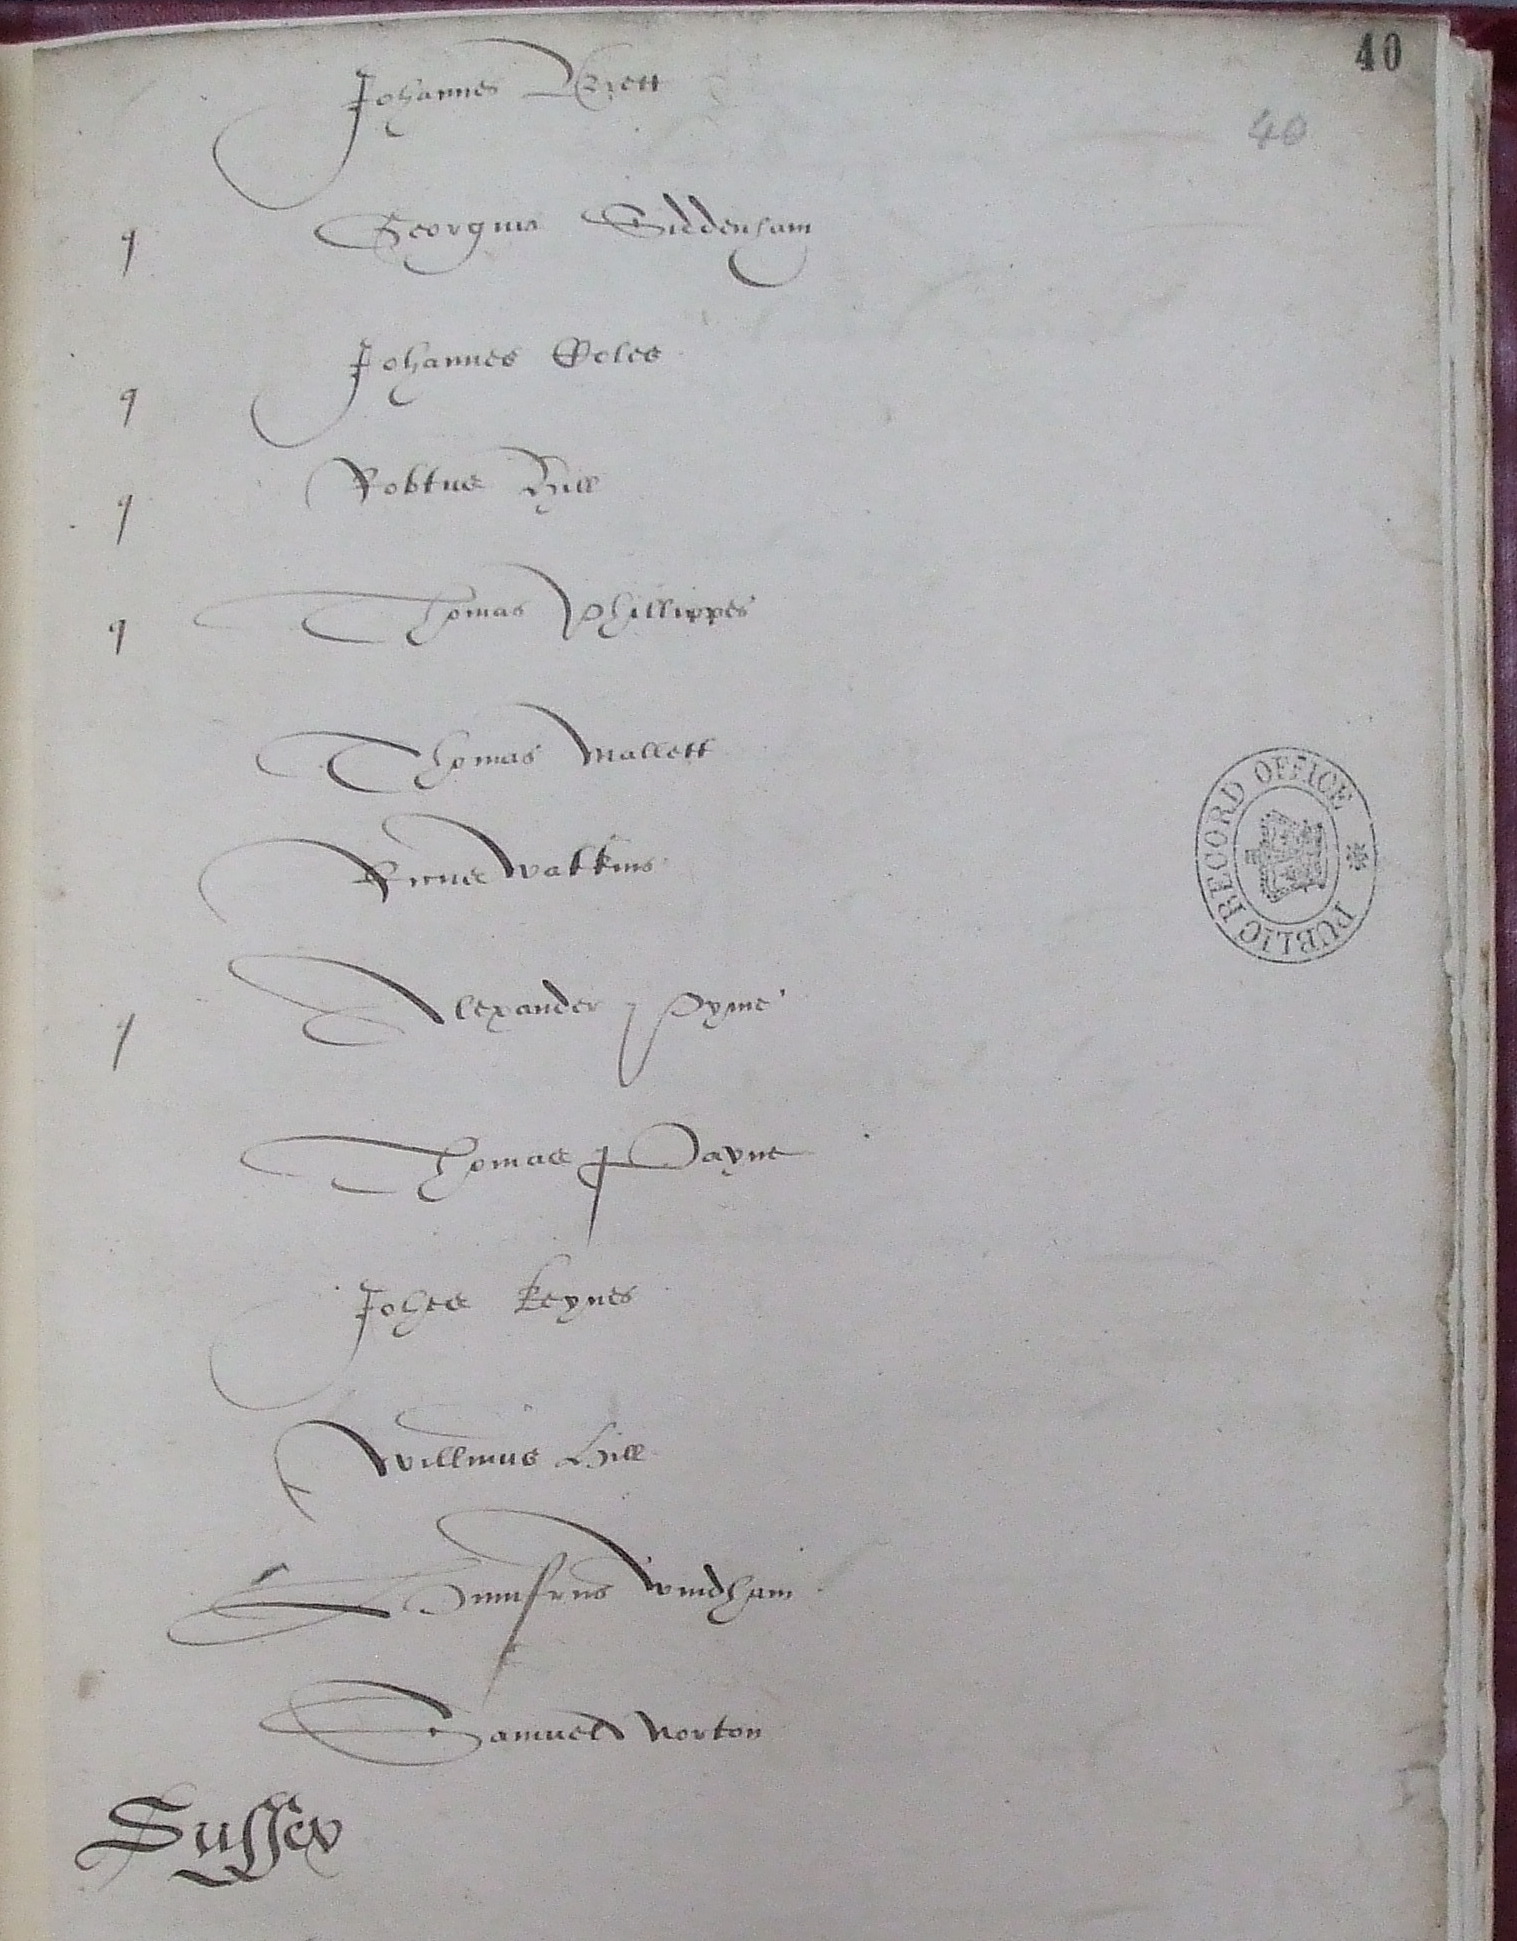 40
Johannes Brett
40
q Georgius Siddenham
Johannes Coles
q
Robtus Hill
q
Thomas Phillippes
q
Thomas Mallett
Ricus Watkins
Alexander Pyme
q
Thomas Payne
Johes Keynes
Willmus Hill
Humfrus Windham
Samuel Norton
Sussex
PUBLIC RECORD OFFICE